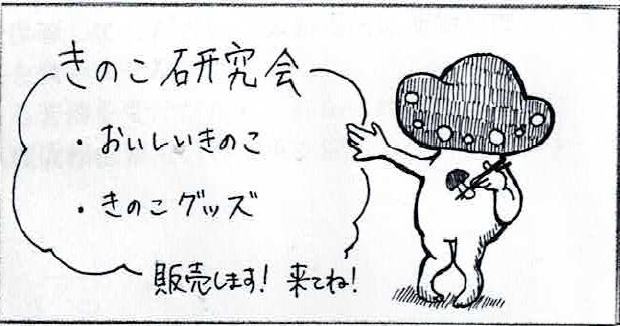 きのこ研究会
・おいしいきのこ
・きのこグッズ
販売します! 来てね!